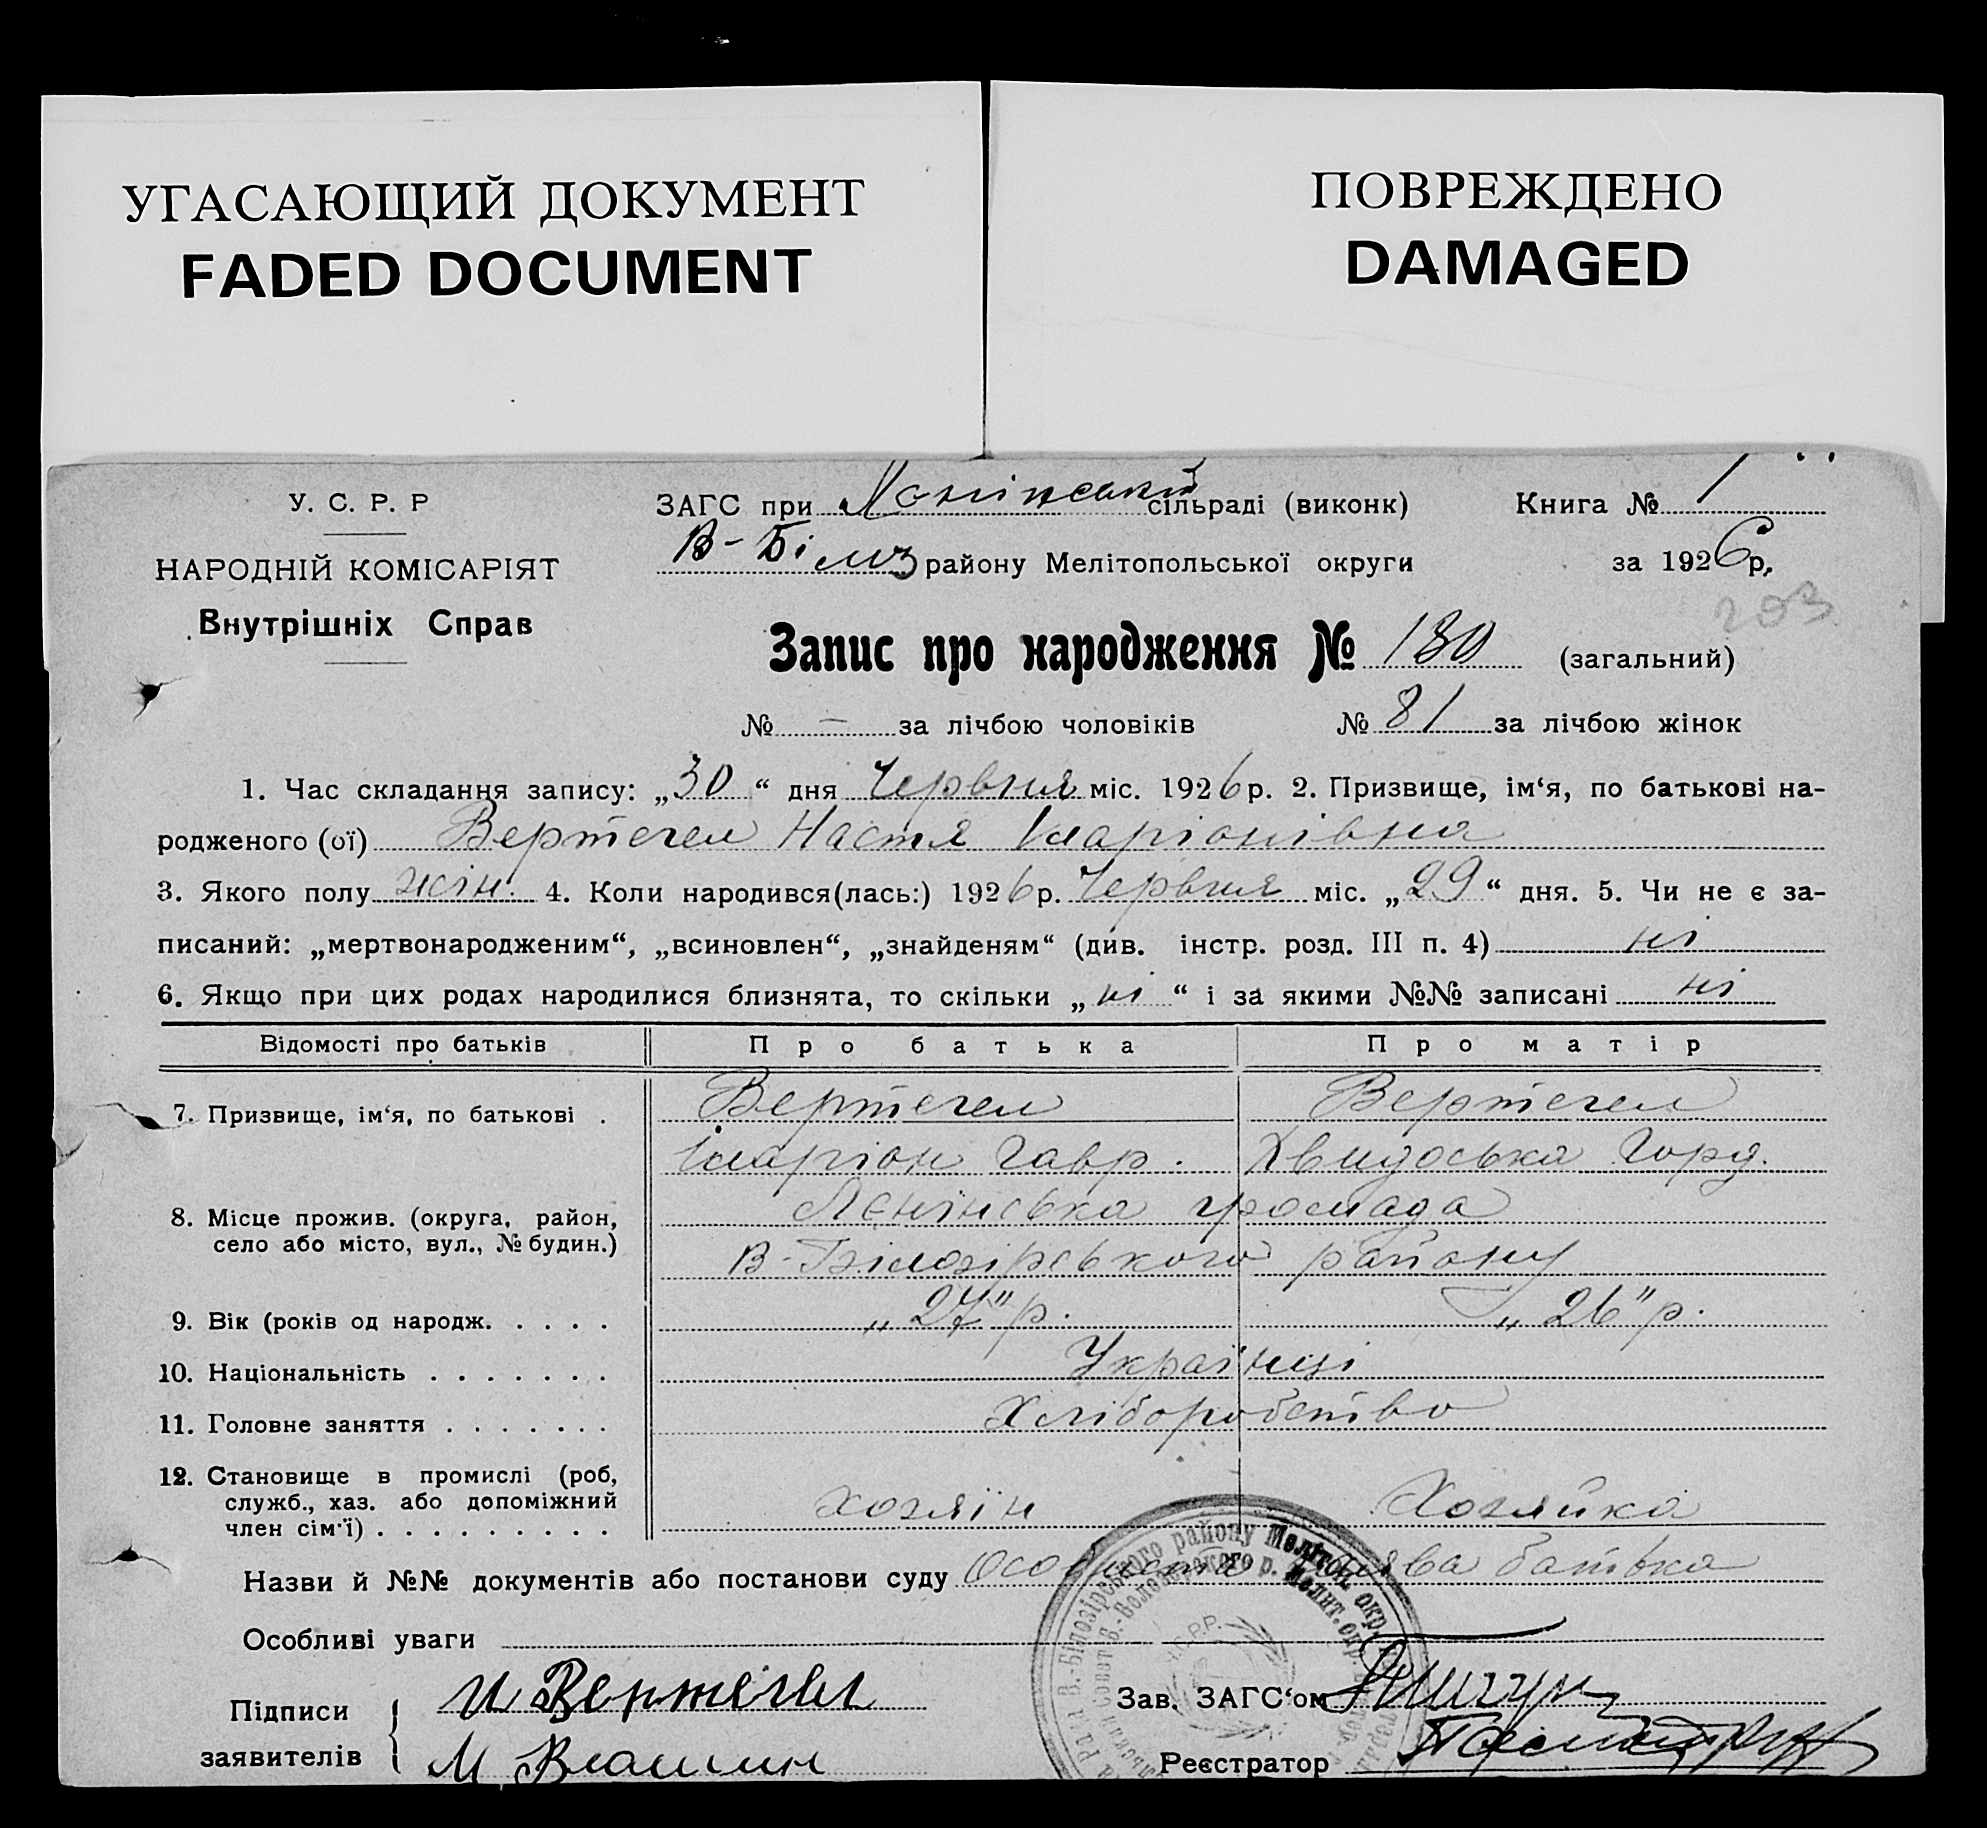 УГАСАЮЩИЙ ДОКУМЕНТ
FADED DOCUMENT
ПОВРЕЖДЕНО
DAMAGED
У. С. Р. Р
НАРОДНІЙ КОМІСАРІЯТ
Внутрішніх Справ
ЗАГС при сільраді (виконк)
В-Білоз району Мелітопольської округи
Книга № 1
за 1926 р.
203
Запис про народження № 180 (загальний)
№ — за лічбою чоловіків № 81 за лічбою жінок
1. Час складання запису: „30“ дня Червня міс. 1926 р. 2. Призвище, ім‘я, по батькові на-
родженого (ої) Вертегел Настя Іларіонівна
3. Якого полу жін. 4. Коли народився(лась:) 1926 р. Червня міс. „29“ дня. 5. Чи не є за-
писаний: „мертвонародженим“, „всиновлен“, „знайденям“ (див. інстр. розд. III п. 4) ні
6. Якщо при цих родах народилися близнята, то скільки „ні“ і за якими №№ записані ні
Відомості про батьків Про батька Про матір
7. Призвище, ім‘я, по батькові . Вертегел Вертегел
Іларіон Гавр. Хвидоська Горд.
8. Місце прожив. (округа, район, Лєнінська громада
село або місто, вул., № будин.) В-Білозірського району
9. Вік (років од народж. . . . . „27" р. „26" р.
10. Національність . . . . . . . Українці
11. Головне заняття . . . . . . . Хліборобство
12. Становище в промислі (роб,
служб., хаз. або допоміжний
член сім‘ї) . . . . . . . . . хозяїн Хозяйка
Назви й №№ документів або постанови суду Особиста заява батька
Особливі уваги
Підписи
заявителів
И Вертегел
М
Зав. ЗАГС‘ом
Реєстратор
В.-Білозірського району Меліт. окр.
У.С.Р.Р.